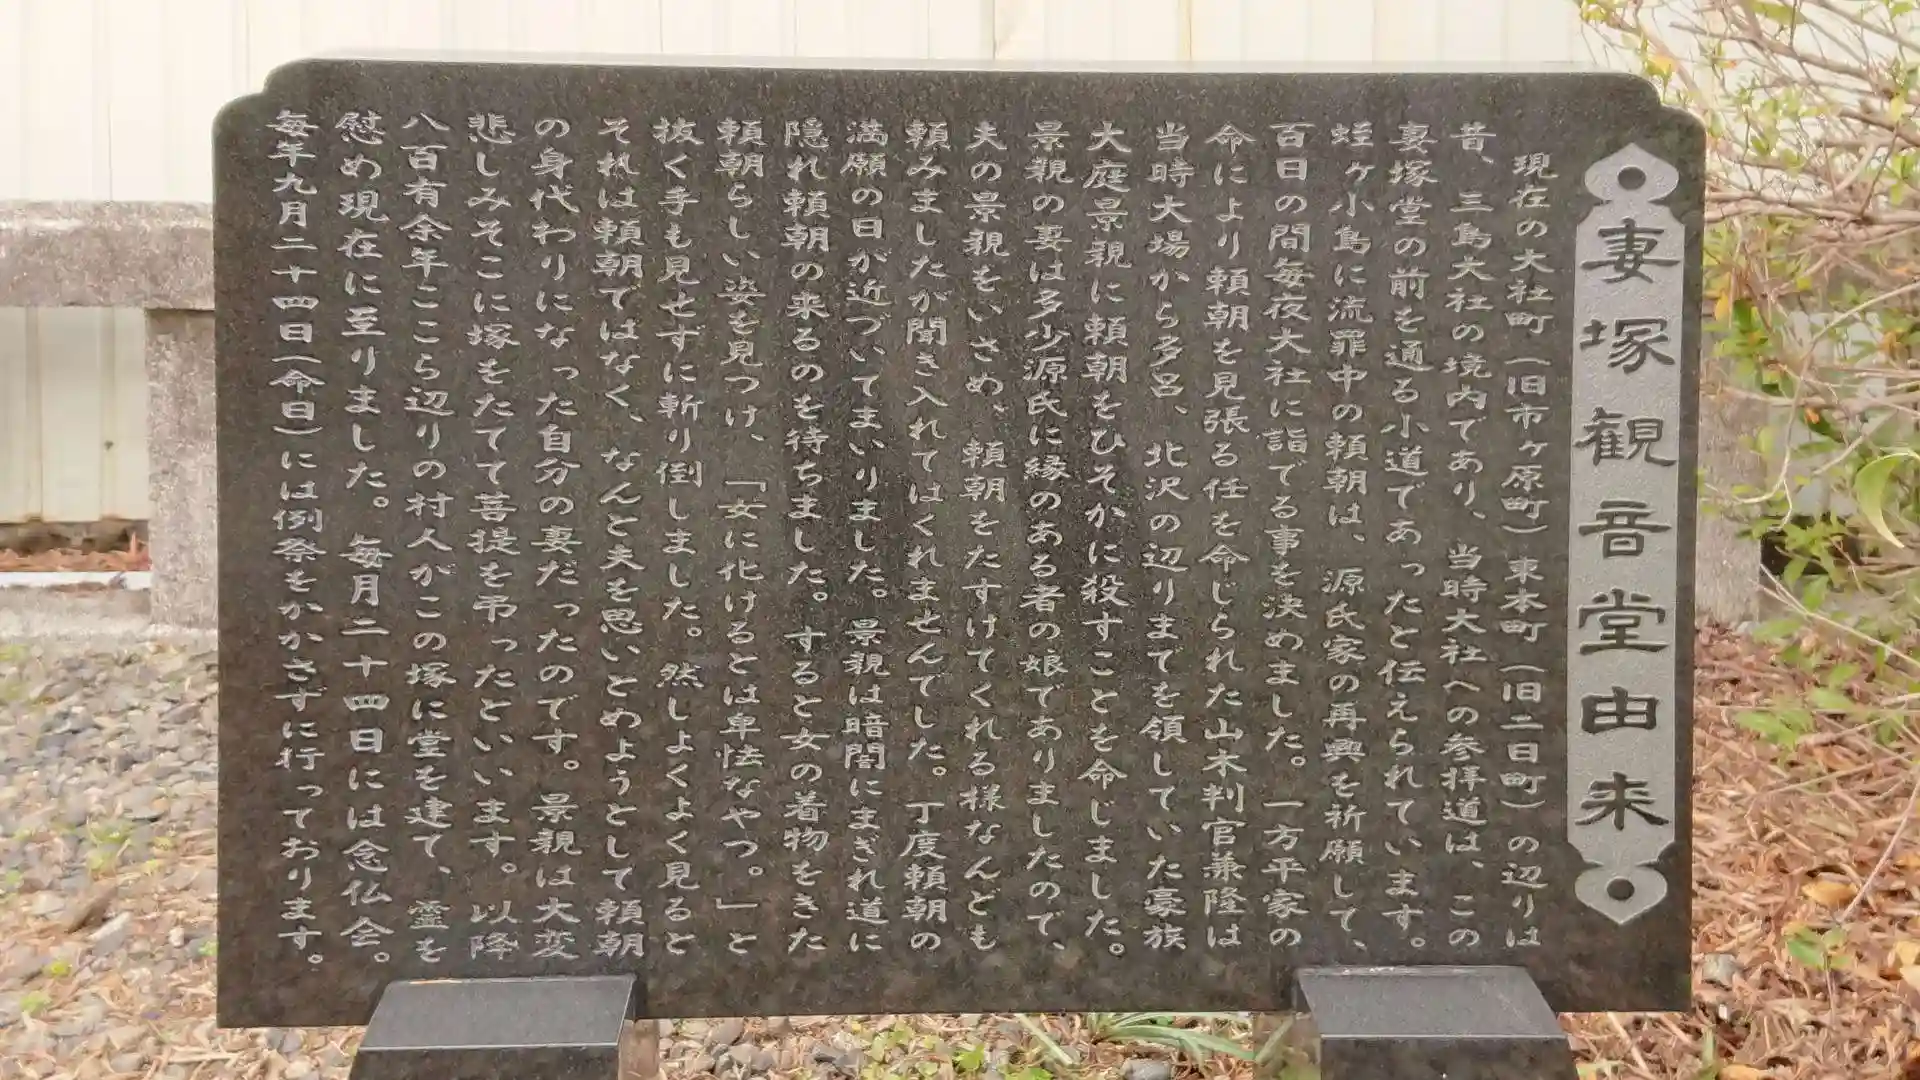 妻塚観音堂由来
現在の大社町（旧市ヶ原町）東本町（旧二日町）の辺りは
昔、三島大社の境内であり、当時大社への参拝道は、この
妻塚堂の前を通る小道であったと伝えられています。
蛭ヶ小島に流罪中の頼朝は、源氏家の再興を祈願して、
百日の間毎夜大社に詣でる事を決めました。一方平家の
命により頼朝を見張る任を命じられた山木判官兼隆は
当時大場から多呂、北沢の辺りまでを領していた豪族
大庭景親に頼朝をひそかに殺すことを命じました。
景親の妻は多少源氏に縁のある者の娘でありましたので、
夫の景親をいさめ、頼朝をたすけてくれる様なんども
頼みましたが聞き入れてはくれませんでした。丁度頼朝の
満願の日が近づいてまいりました。景親は暗闇にまぎれ道に
隠れ頼朝の来るのを待ちました。すると女の着物をきた
頼朝らしい姿を見つけ、「女に化けるとは卑怯なやつ。」と
抜く手も見せずに斬り倒しました。然しよくよく見ると
それは頼朝ではなく、なんと夫を思いとめようとして頼朝
の身代わりになった自分の妻だったのです。景親は大変
悲しみそこに塚をたてて菩提を弔ったといいます。以降
八百有余年ここら辺りの村人がこの塚に堂を建て、霊を
慰め現在に至りました。毎月二十四日には念仏会。
毎年九月二十四日（命日）には例祭をかかさずに行っております。